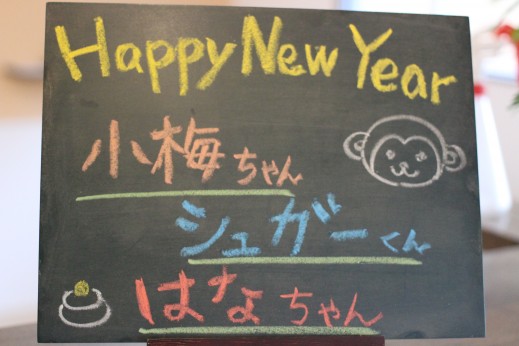 Happy New Year
小梅ちゃん
シュガーくん
はなちゃん